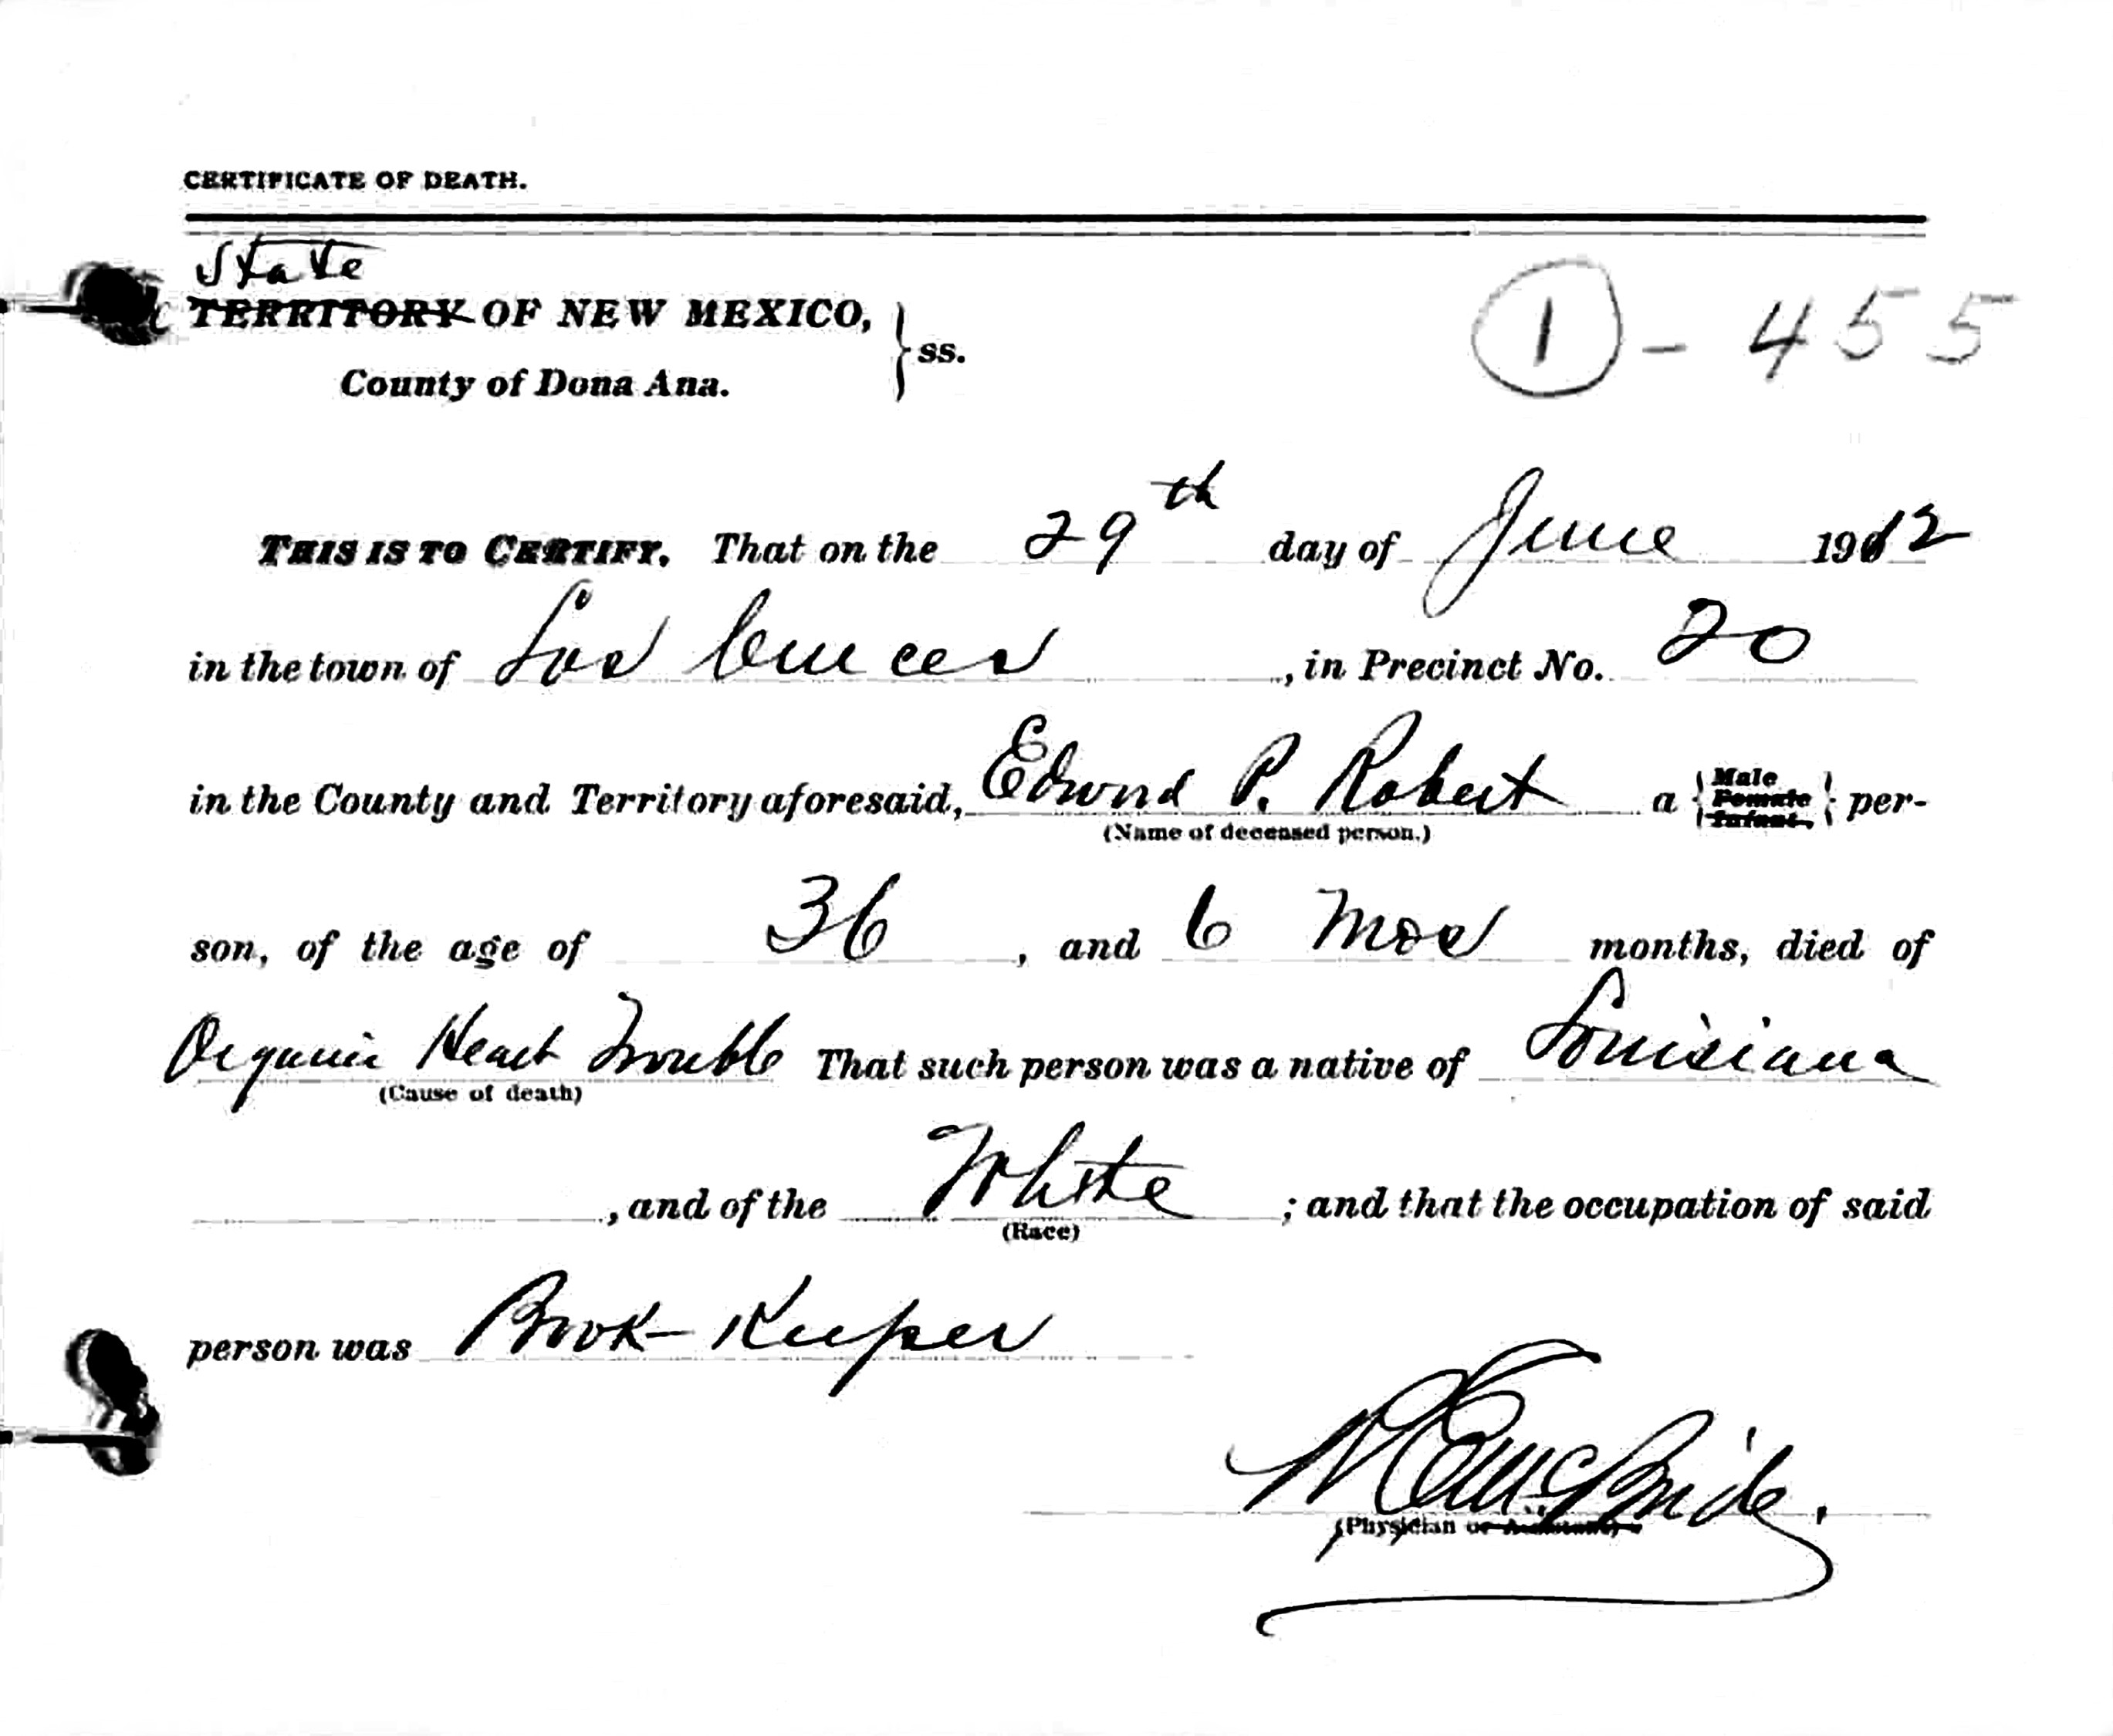 CERTIFICATE OF DEATH.
State
TERRITORY OF NEW MEXICO,
ss.
County of Dona Ana.
1 - 455
THIS IS TO CERTIFY. That on the 29th day of June 1912
in the town of Las Cruces, in Precinct No. 20
in the County and Territory aforesaid, Edwnd P. Robert a Male Female Infant. per-
(Name of deceased person.)
son, of the age of 36, and 6 mos months, died of
Organic Heart Trouble That such person was a native of Louisiana
(Cause of death)
, and of the White ; and that the occupation of said
(Race)
person was Book-Keeper
McBride.
(Physician or Assistant)